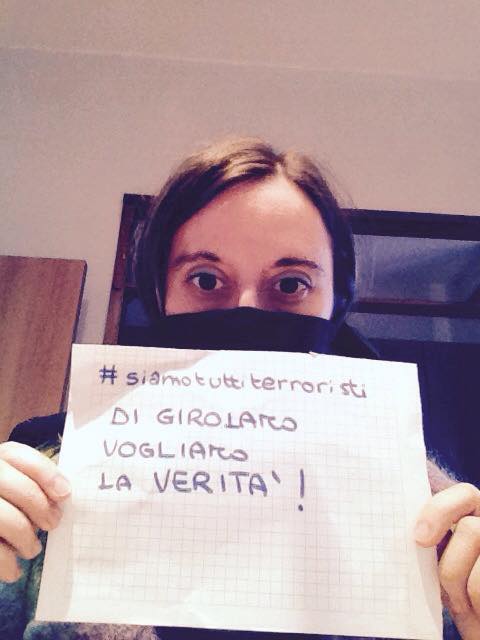 #siamotuttiterroristi
DI GIROLAMO
VOGLIAMO
LA VERITA'!